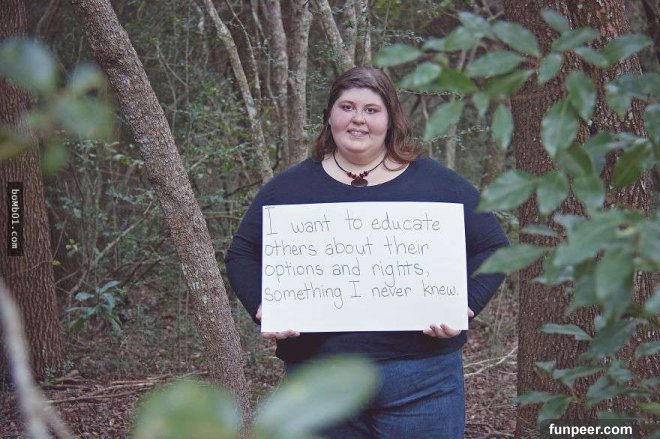 I want to educate
others about their
options and rights,
something I never knew.
boMb01.cc
funpeer.com